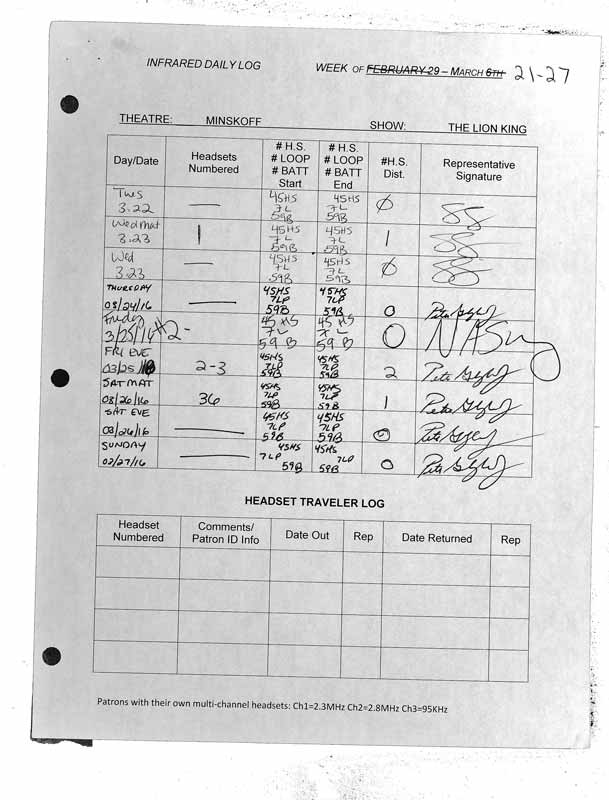 INFRARED DAILY LOG WEEK OF FEBRUARY 29 – MARCH 6TH 21-27
THEATRE: MINSKOFF SHOW: THE LION KING
Day/Date Headsets Numbered # H.S. # LOOP # BATT Start # H.S. # LOOP # BATT End #H.S. Dist. Representative Signature
Tues 3.22 — 45HS 7L 59B 45HS 7L 59B Ø
Wed mat 3.23 1 45HS 7L 59B 45HS 7L 59B 1
Wed 3.23 — 45HS 7L 59B 45HS 7L 59B Ø
THURSDAY 03/24/16 — 45HS 7LP 59B 45HS 7LP 59B 0
Friday 3/25/16 45 HS 7L 59 B 45 HS 7L 59 B 0
FRI EVE 03/25/16 2-3 45HS 7LP 59B 45HS 7LP 59B 2
SAT MAT 03/26/16 36 45HS 7LP 59B 45HS 7LP 59B 1
SAT EVE 03/26/16 — 45HS 7LP 59B 45HS 7LP 59B 0
SUNDAY 02/27/16 — 45HS 7LP 59B 45HS 7LP 59B 0
HEADSET TRAVELER LOG
Headset Numbered Comments/ Patron ID Info Date Out Rep Date Returned Rep
Patrons with their own multi-channel headsets: Ch1=2.3MHz Ch2=2.8MHz Ch3=95KHz